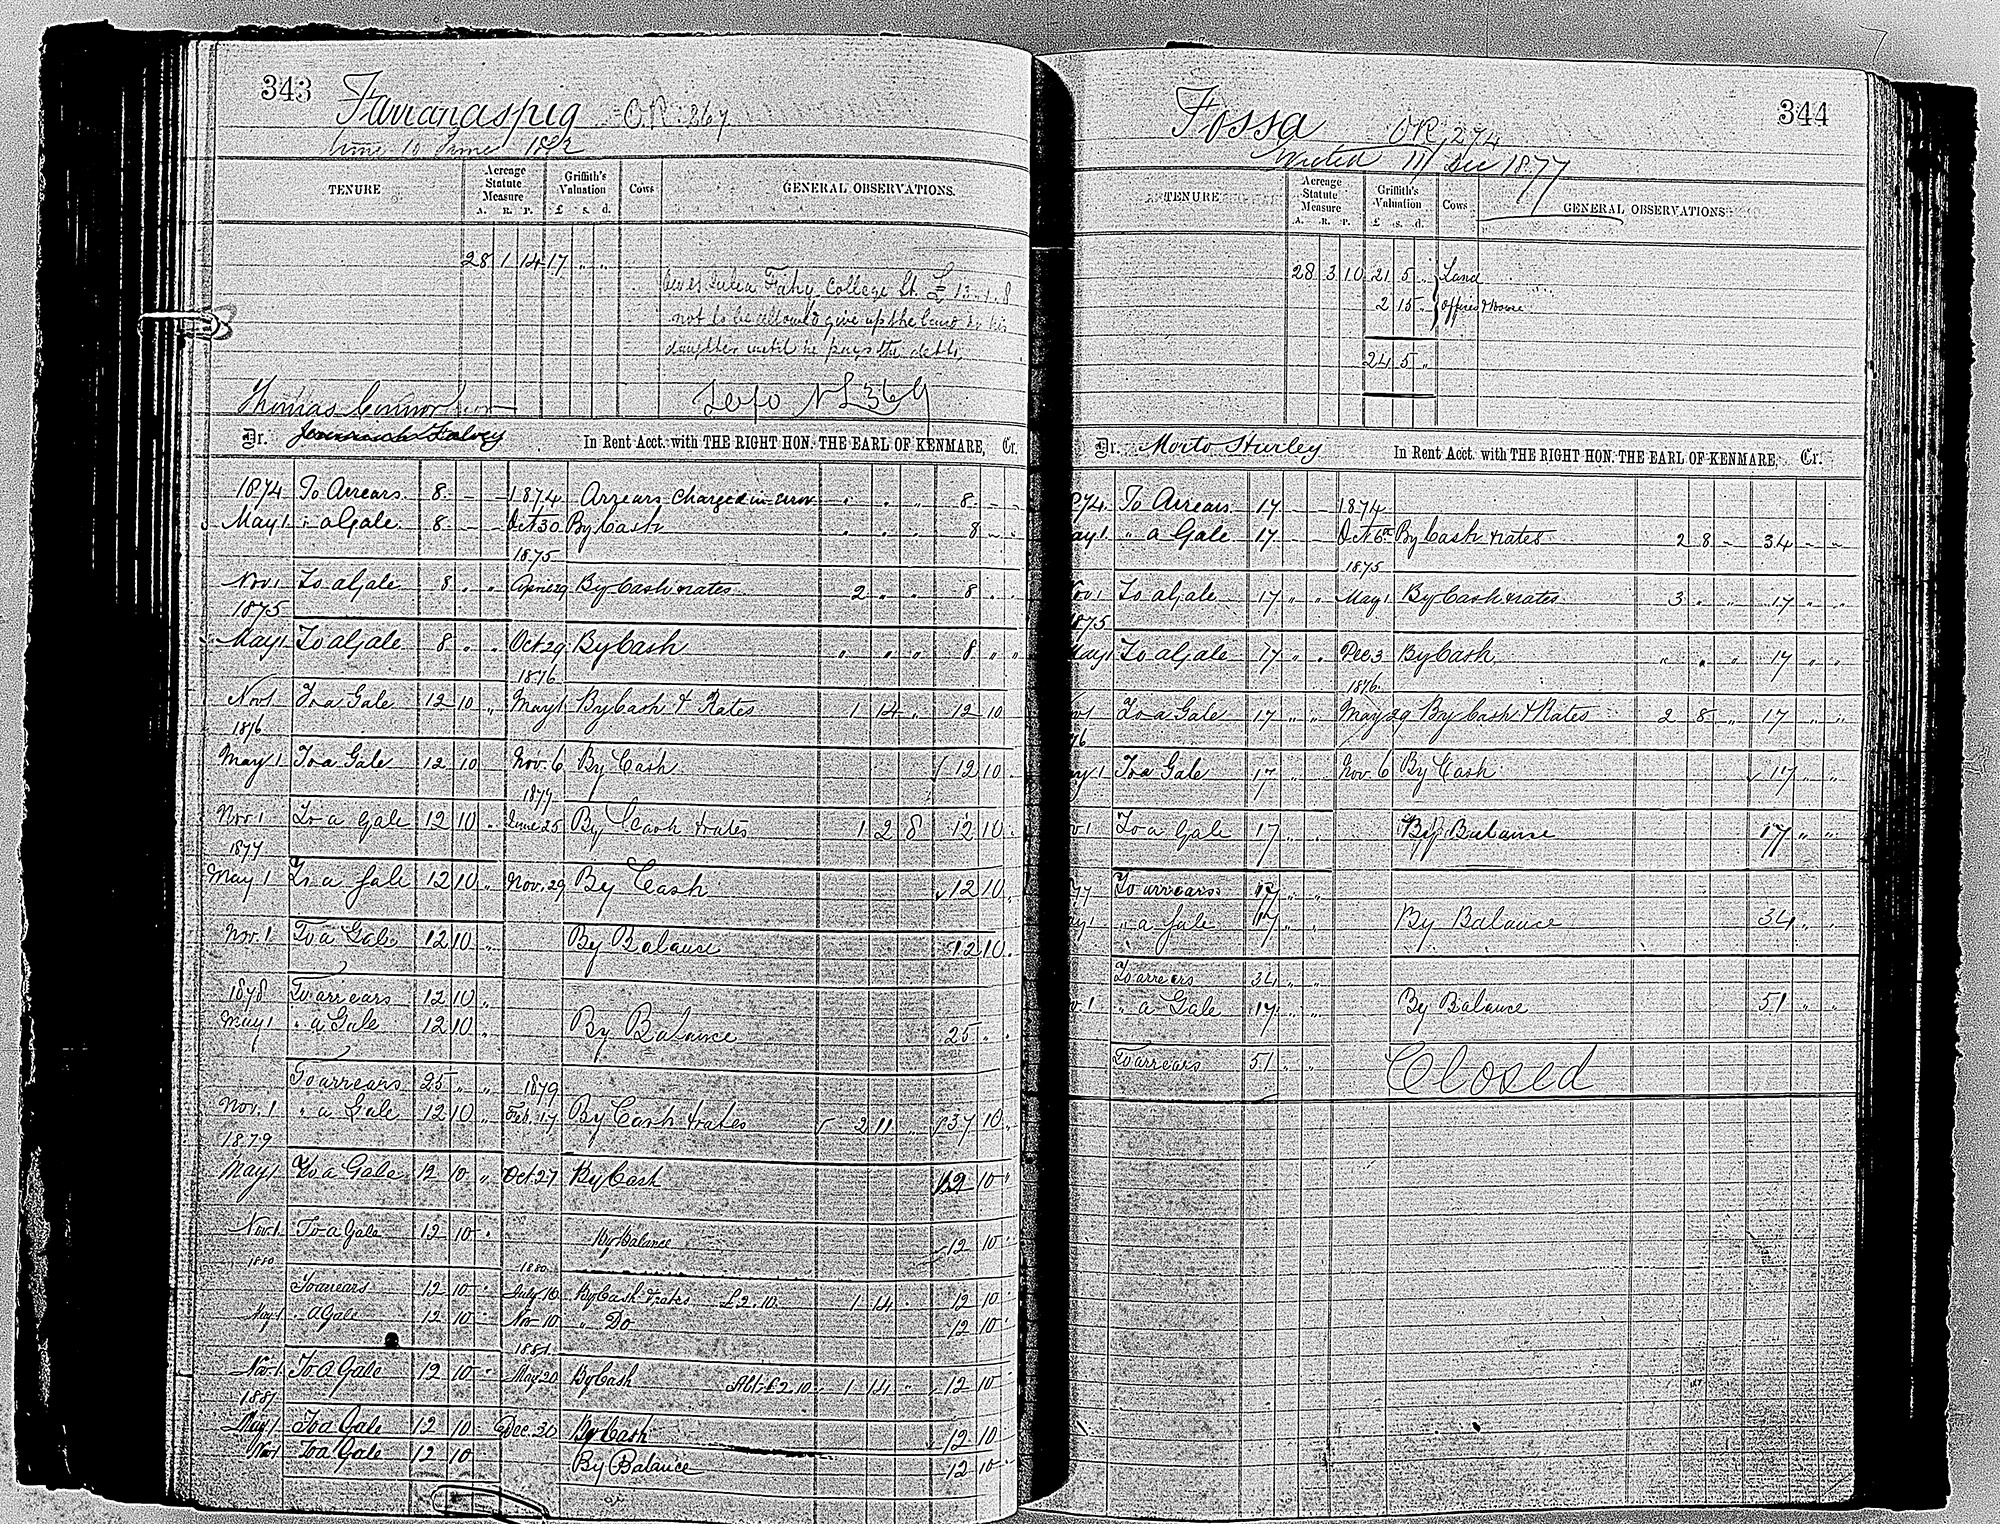 343 Farranaspig O.R. 367
10 June 1882
TENURE Acreage Statute Measure A. R. P. Griffith's Valuation £ s. d. Cows GENERAL OBSERVATIONS.
28 1 14 17 " "
Julia Fahy College St. £13.1.8
not to be allowed give up the land to his
daughter until he pays the debt.
Thomas Connor
To fo NL 369
Dr. Jeremiah Falvey In Rent Acct. with THE RIGHT HON. THE EARL OF KENMARE, Cr.
1874 To Arrears 8 - - 1874 Arrears charged in error " " " 8 - -
May 1 " a Gale 8 - - Oct 30 By Cash " " " 8 - -
1875
Nov 1 To a Gale 8 " " April 29 By Cash & rates 2 " " 8 " "
1875
May 1 To a Gale 8 " " Oct 29 By Cash " " " 8 " "
1876
Nov 1 To a Gale 12 10 " May 1 By Cash & Rates 1 14 " 12 10
1876
May 1 To a Gale 12 10 Nov. 6 By Cash 12 10 "
1877
Nov 1 To a Gale 12 10 " June 25 By Cash & rates 1 2 8 12 10 "
1877
May 1 To a Gale 12 10 " Nov. 29 By Cash 12 10 "
Nov. 1 To a Gale 12 10 " By Balance 12 10 "
1878 To arrears 12 10 "
May 1 " a Gale 12 10 " By Balance 25 " "
To arrears 25 " " 1879
Nov. 1 " a Gale 12 10 " Feb. 17 By Cash & rates 2 11 " 37 10 "
1879
May 1 To a Gale 12 10 " Oct. 27 By Cash 12 10 "
Nov. 1 To a Gale 12 10 " By Balance 12 10 "
1880 1880
To arrears 12 10 " July 10 By Cash & rates £2.10 1 14 " 12 10 "
May 1 " a Gale 12 10 " Nov 10 " Do 12 10 "
1881
Nov. 1 To a Gale 12 10 " May 20 By Cash Abt £2.10 1 14 " 12 10 "
1881
May 1 To a Gale 12 10 Dec. 30 By Cash 12 10
Nov 1 To a Gale 12 10 By Balance 12 10 "
344 Fossa OR 274
11 Dec 1877
TENURE Acreage Statute Measure A. R. P. Griffith's Valuation £ s. d. Cows GENERAL OBSERVATIONS
28 3 10 21 5 " Land
2 15 " Offices & House
24 5 "
Dr. Morto Hurley In Rent Acct. with THE RIGHT HON. THE EARL OF KENMARE, Cr.
874 To Arrears 17 - - 1874
ay 1. " a Gale 17 - - Oct 6 By Cash & rates 2 8 - 34 - -
1875
Nov 1 To a Gale 17 " " May 1 By Cash & rates 3 " " 17 " "
1875
May 1 To a Gale 17 " " Dec 3 By Cash " " " 17 " "
1876
ov 1 To a Gale 17 " " May 29 By Cash & Rates 2 8 " 17 " "
76
ay 1 To a Gale 17 " " Nov. 6 By Cash 17 " "
v 1 To a Gale 17 " " By Balance 17 " "
77 To arrears 17 " "
y 1 " a Gale 17 " " By Balance 34 " "
To arrears 34 " "
v. 1 " a Gale 17 " " By Balance 51 " "
To arrears 51 " " Closed